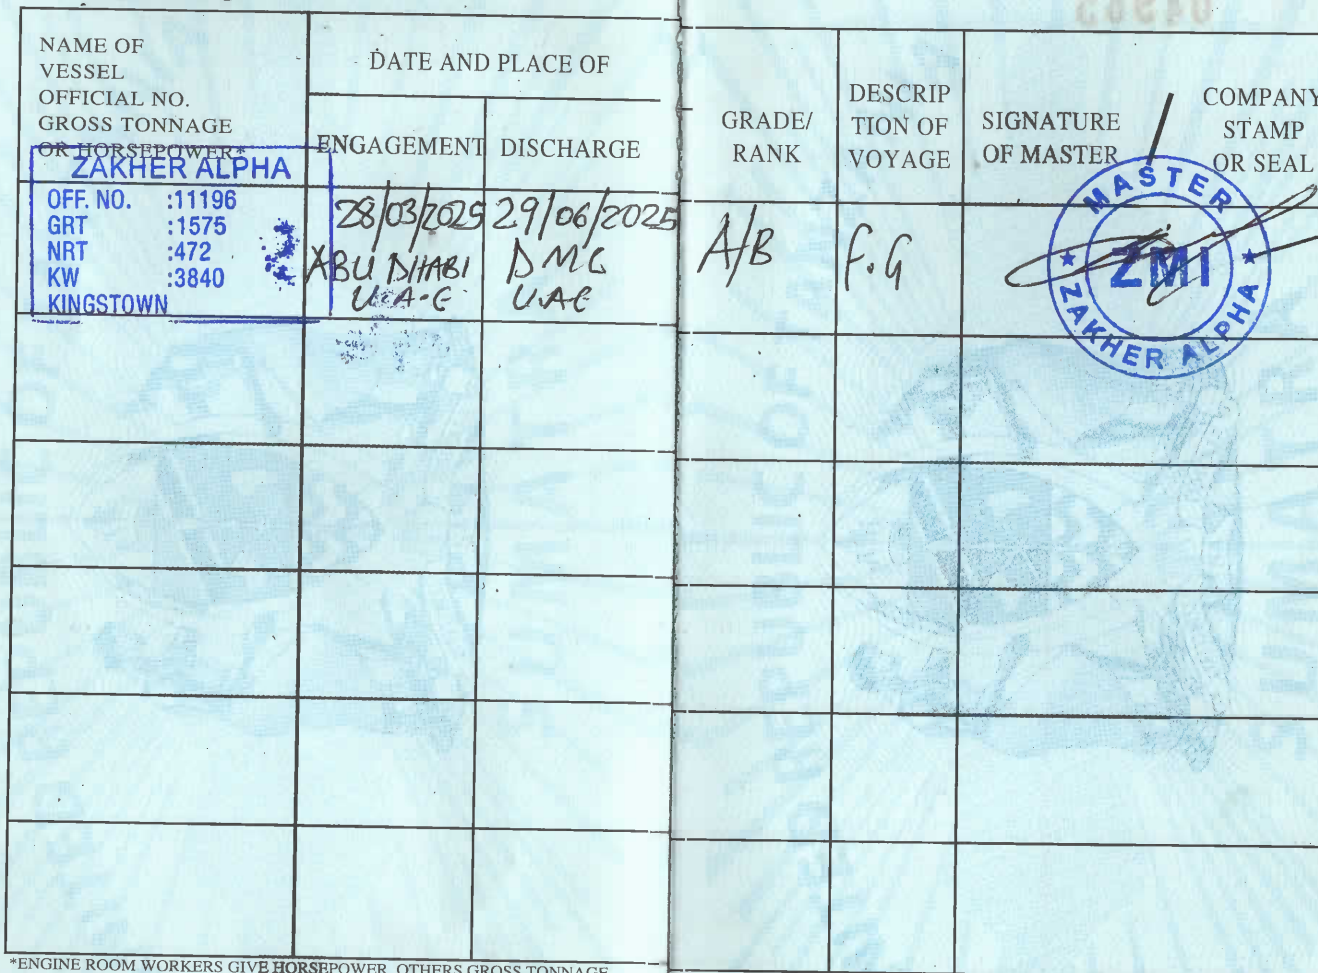 NAME OF
VESSEL
OFFICIAL NO.
GROSS TONNAGE
OR HORSEPOWER*
DATE AND PLACE OF
ENGAGEMENT
DISCHARGE
GRADE/
RANK
DESCRIP
TION OF
VOYAGE
SIGNATURE
OF MASTER
/
COMPANY
STAMP
OR SEAL
ZAKHER ALPHA
OFF. NO. :11196
GRT :1575
NRT :472
KW :3840
KINGSTOWN
28/03/2025
ABU DHABI
U.A.E
29/06/2025
DMC
U.A.E
A/B
F.G
MASTER
ZMI
ZAKHER ALPHA
*ENGINE ROOM WORKERS GIVE HORSEPOWER, OTHERS GROSS TONNAGE